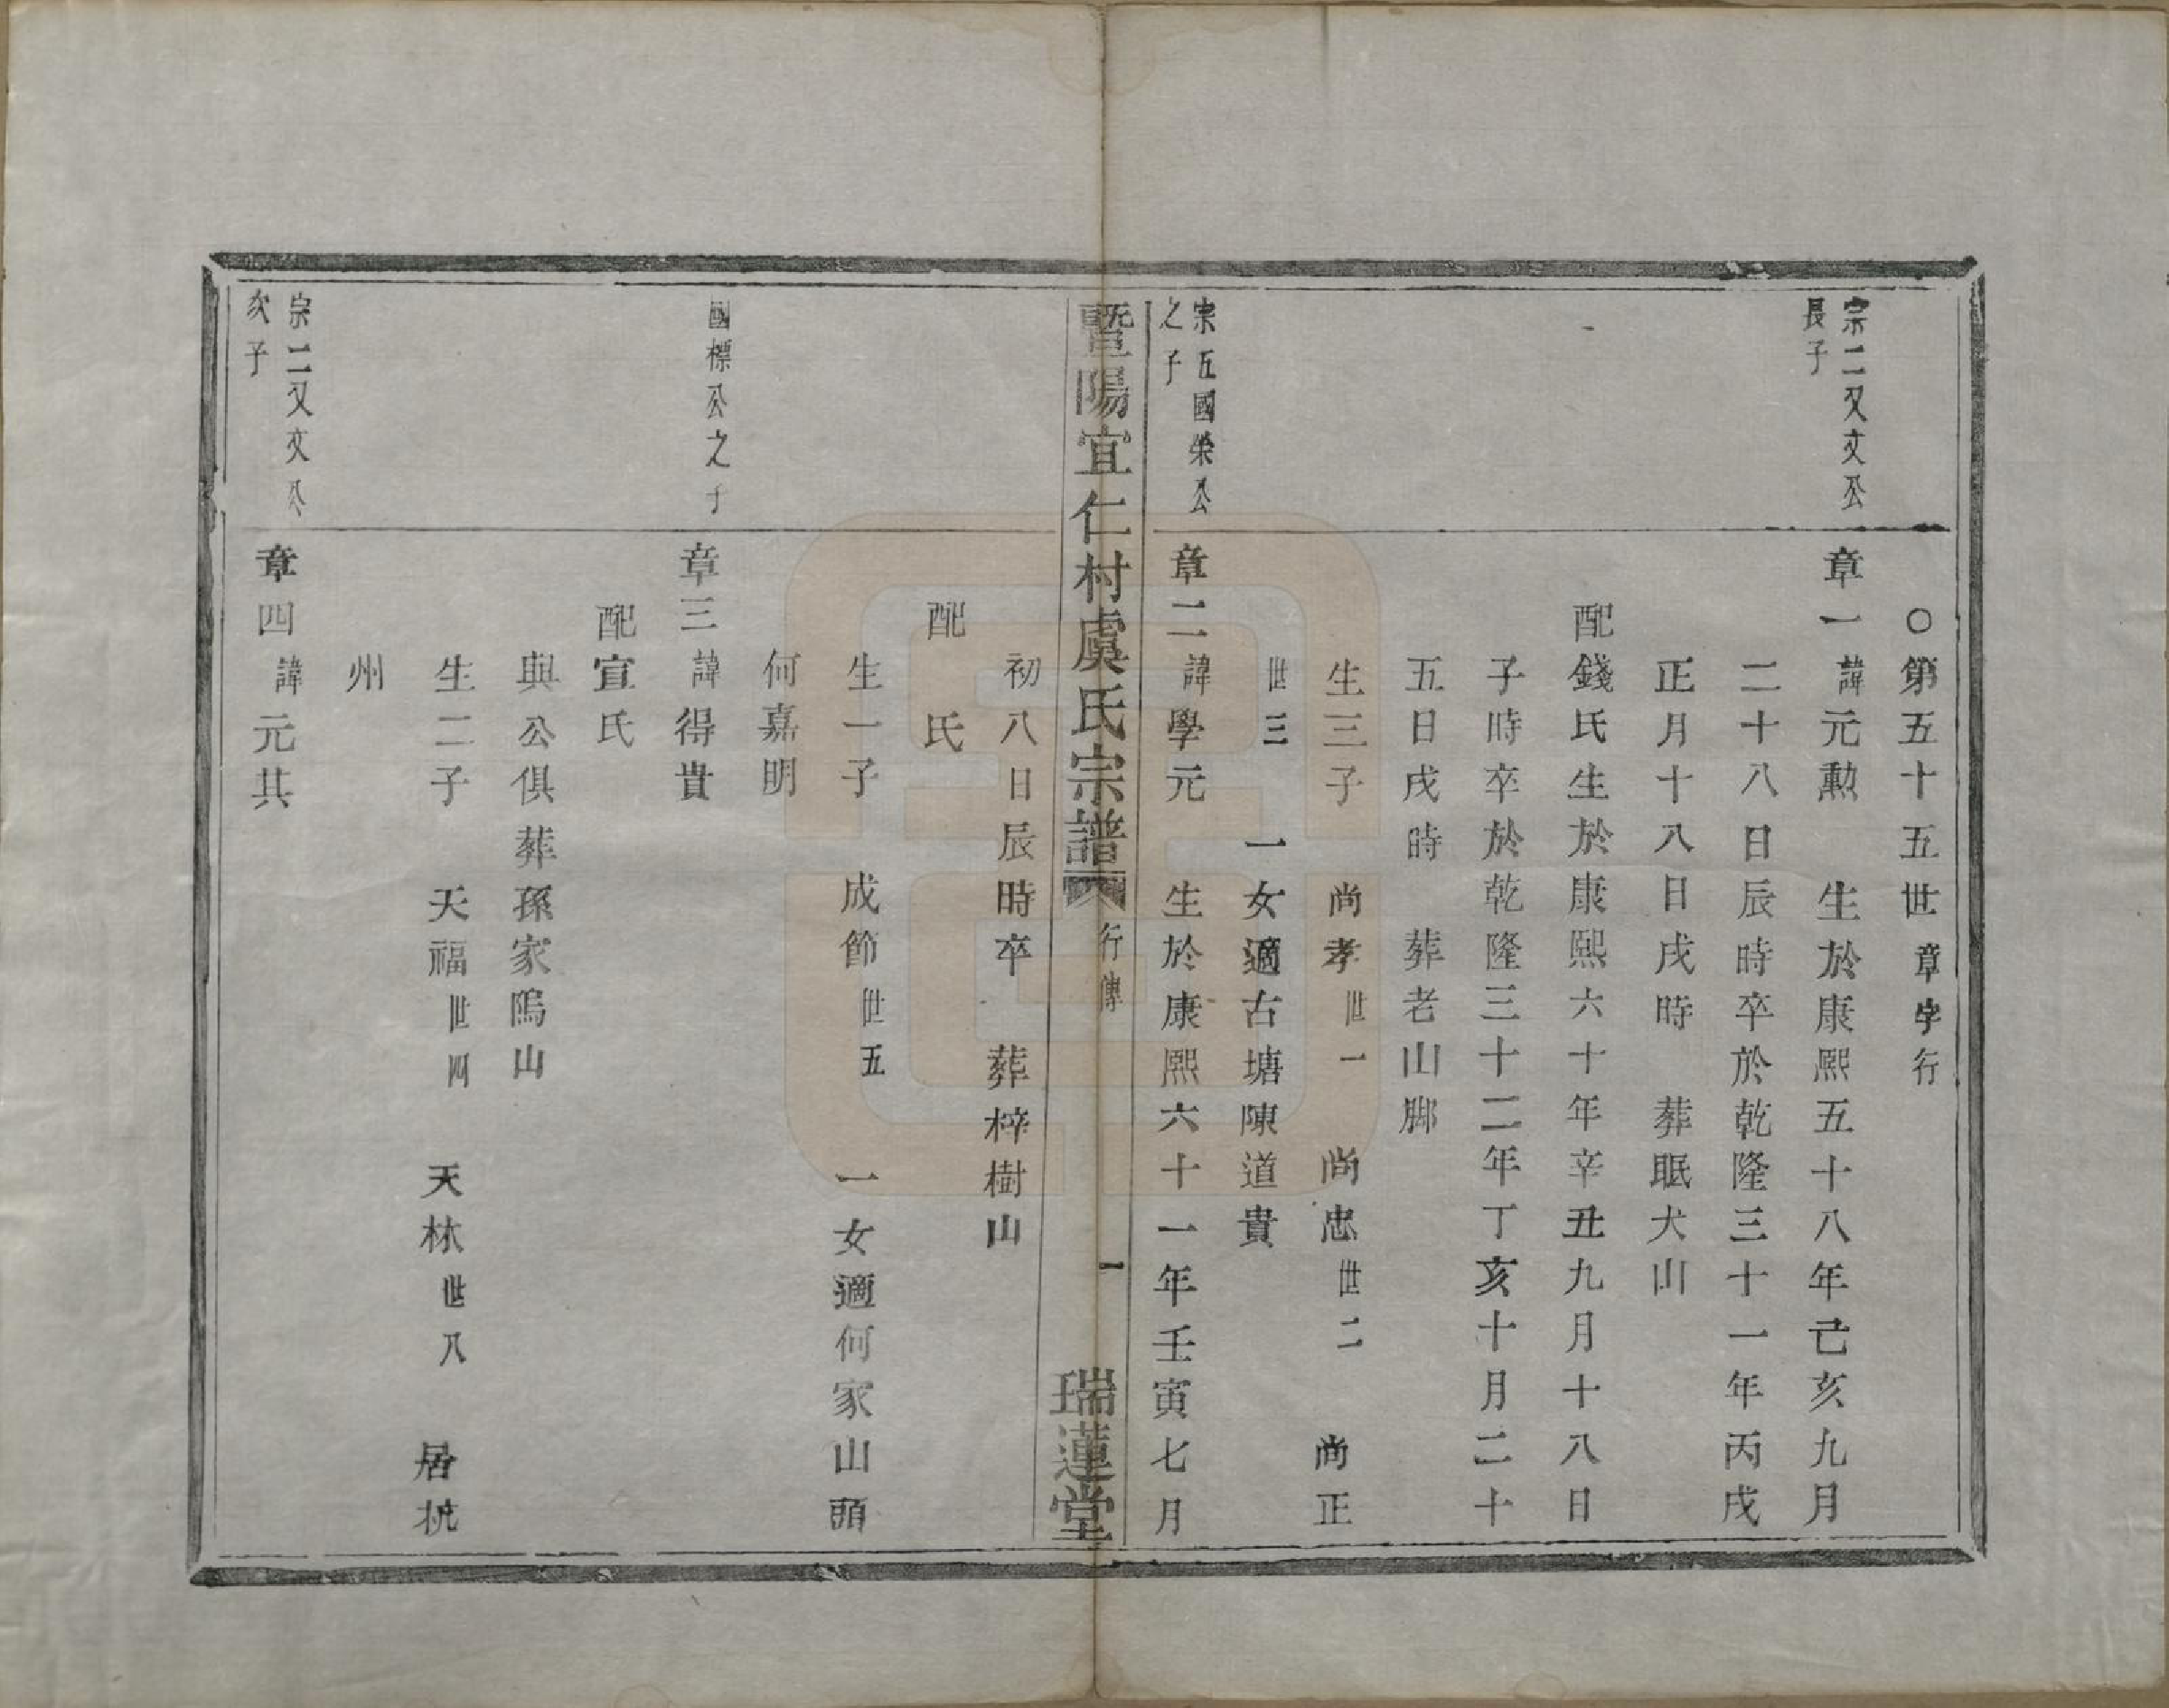 ○第五十五世章字行
宗二又文公
長子
章一諱元勲 生於康熙五十八年己亥九月
二十八日辰時卒於乾隆三十一年丙戌
正月十八日戌時 葬眠犬山
配錢氏生於康熙六十年辛丑九月十八日
子時卒於乾隆三十二年丁亥十月二十
五日戌時 葬老山脚
生三子 尚孝世一 尚忠世二 尚正
世三 一女適古塘陳道貴
宗五國榮公
之子
章二諱學元 生於康熙六十一年壬寅七月
暨陽宜仁村虞氏宗譜 行傳 一 瑞蓮堂
初八日辰時卒 葬梓樹山
配 氏
生一子 成節世五 一女適何家山頭
何嘉明
國標公之子
章三諱得貴
配宣氏
與公俱葬孫家塢山
生二子 天福世四 天林世八 居杭
州
宗二又文公
次子
章四諱元其